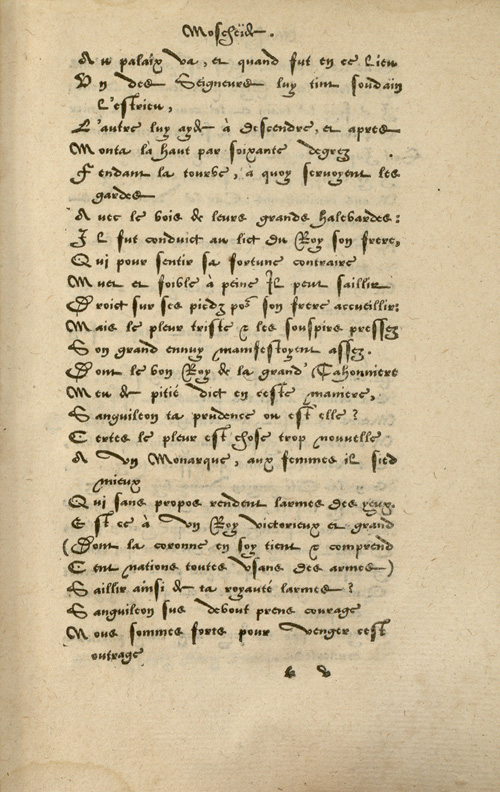 Moscheïde.
Au palaix va, et quand fut en ce lieu
Vn des Seigneurs luy tint soudain
l'estrieu,
L'autre luy ayde à descendre, et apres
Monta la haut par soixante degrez
Fendant la tourbe, à quoy seruoyent les
gardes
Auec le bois de leurs grandes halebardes:
Il fut conduict au lict du Roy son frere,
Qui pour sentir sa fortune contraire
Muet et foible à peine Il peut saillir
Droict sur ses piedz po⁹ son frere accueillir:
Mais le pleur triste & les souspirs pressez
Son grand ennuy manifestoyent assez.
Dont le bon Roy de la grand' Cahonniere
Meu de pitié dict en ceste maniere,
Sanguileon ta prudence ou est elle?
Certes le pleur est chose trop nouuelle
A vn Monarque, aux femmes il sied
mieux
Qui sans propos rendent larmes des yeux.
Est ce à vn Roy victorieux et grand
(Dont la coronne en soy tient & comprend
Cent nations toutes vsans des armes)
Saillir ainsi de ta royauté larmes?
Sanguileon sus debout prens courage
Nous sommes forts pour venger cest
outrage
b v